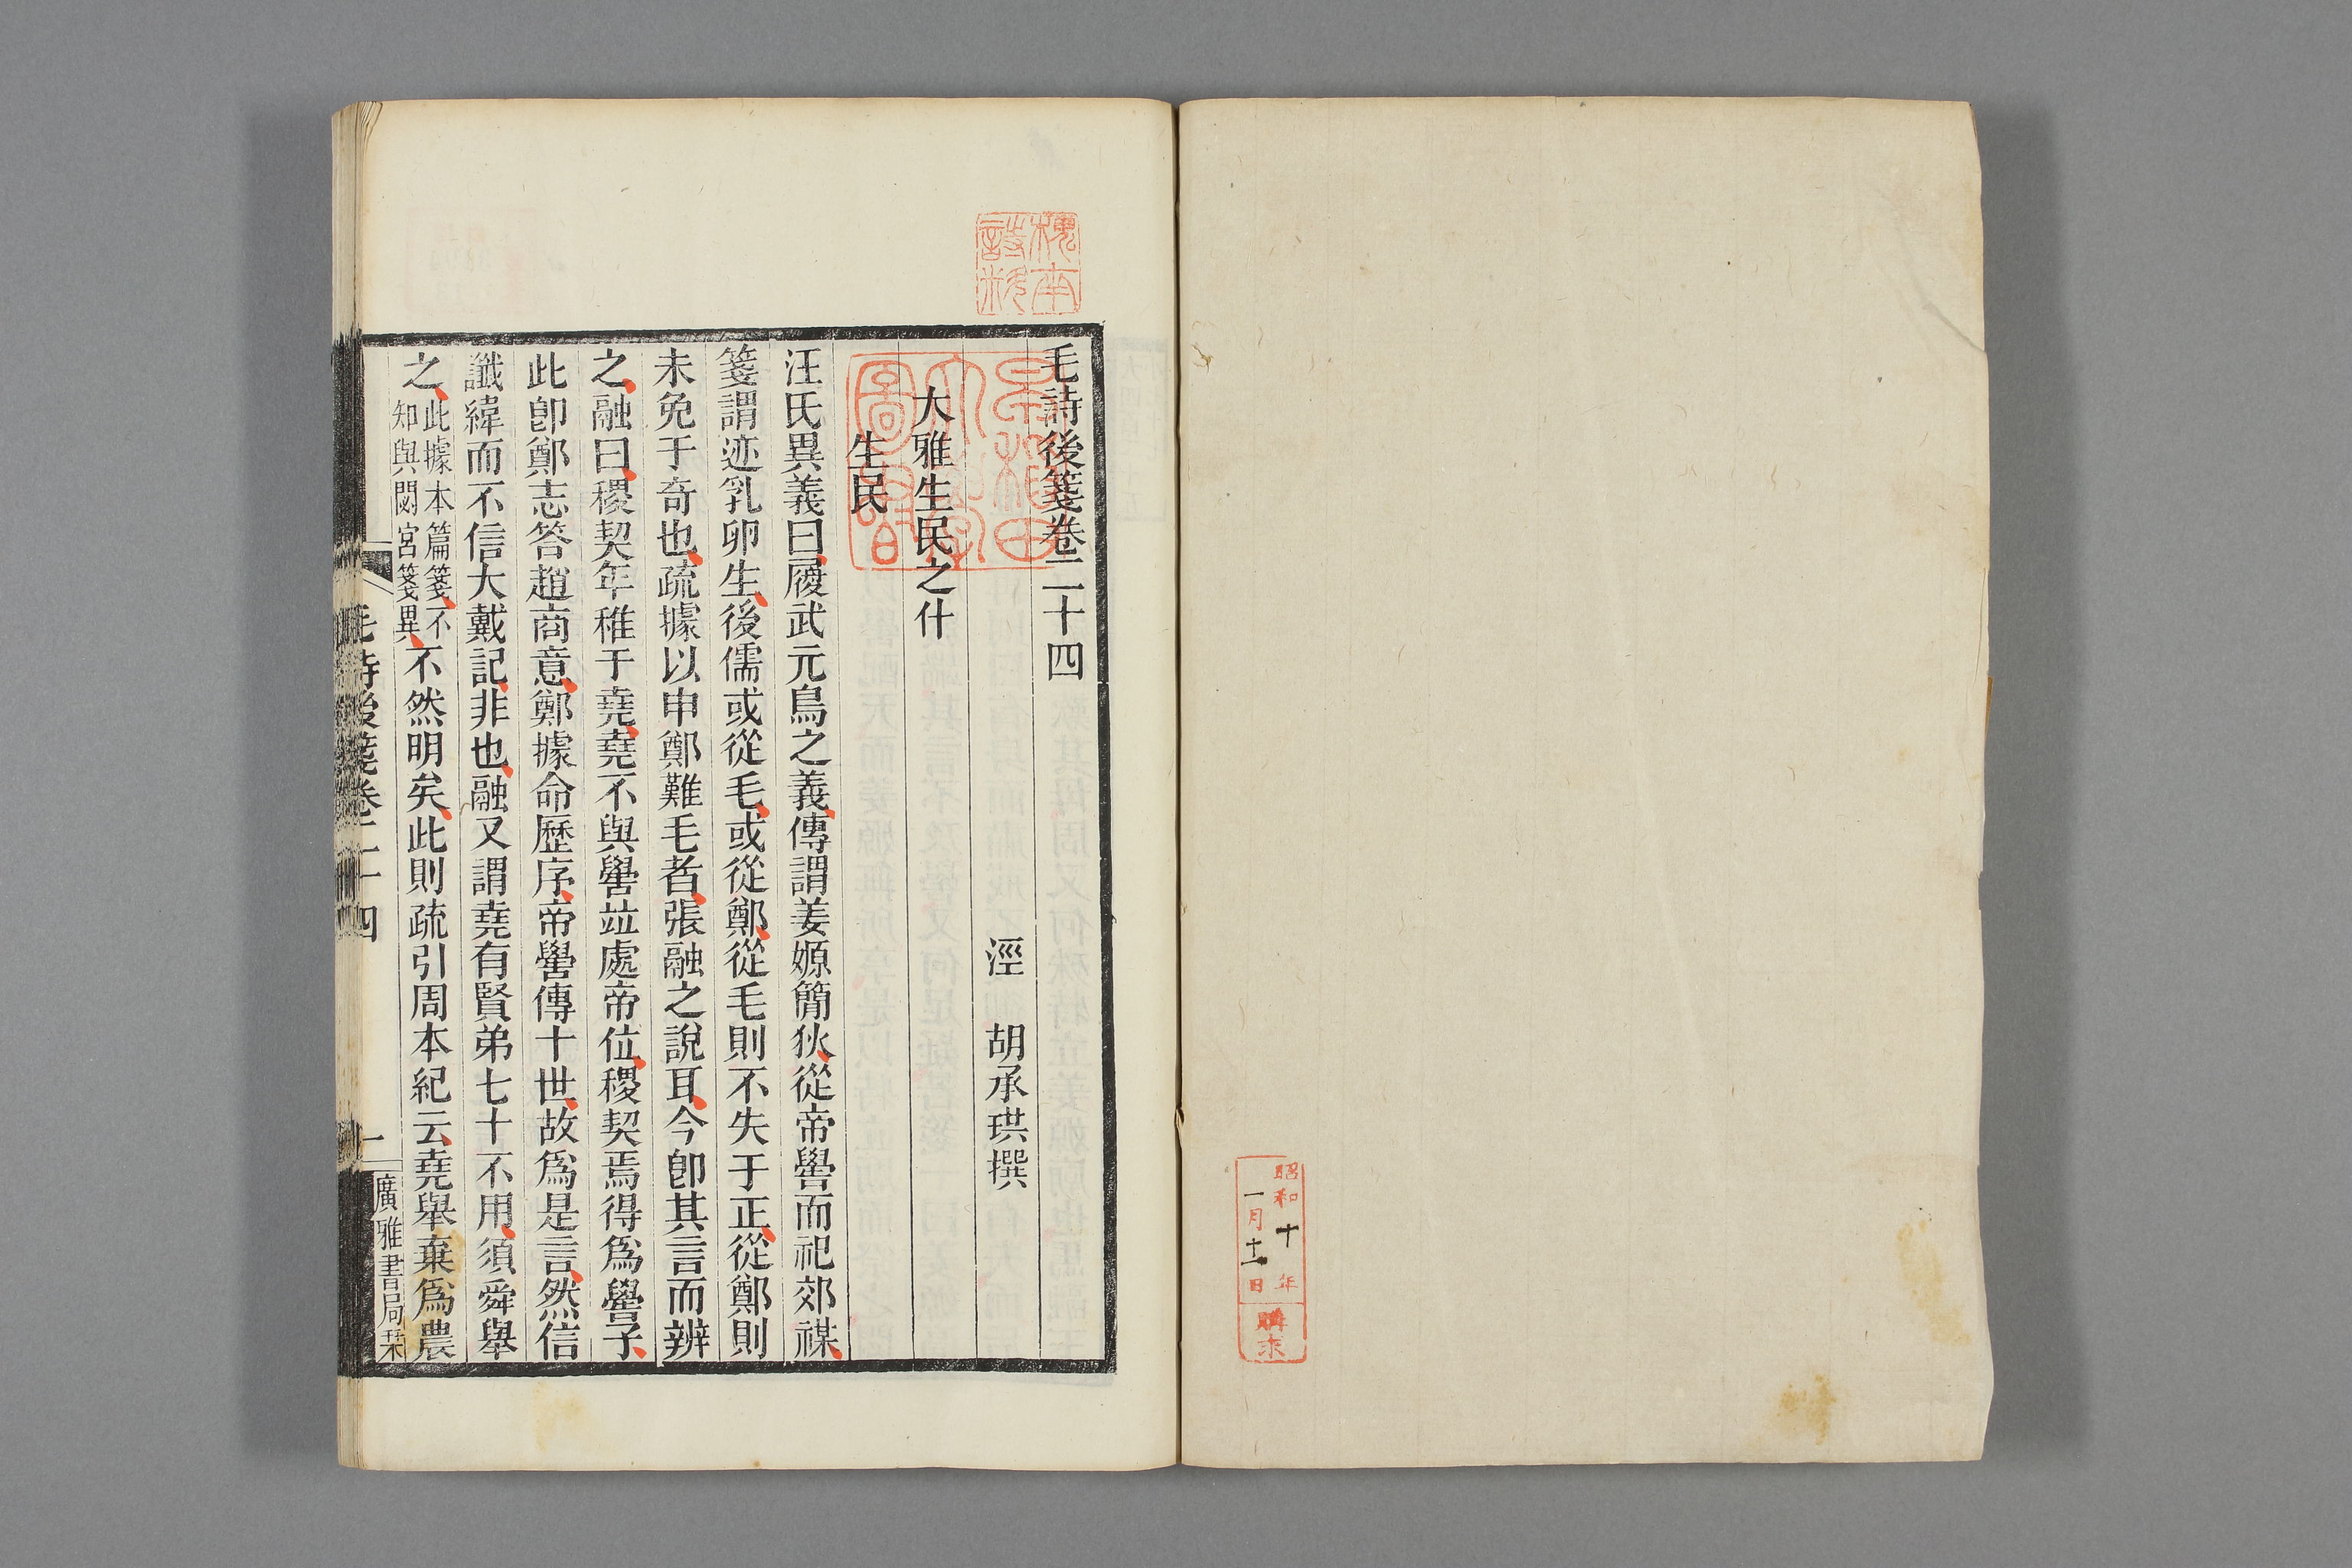 昭和十年
一月十一日
購求
毛詩後箋卷二十四
涇 胡承珙撰
大雅生民之什
生民
汪氏異義曰履武元鳥之義傳謂姜嫄簡狄從帝嚳而祀郊禖
箋謂迹乳卵生後儒或從毛或從鄭從毛則不失于正從鄭則
未免于奇也疏據以申鄭難毛者張融之說耳今卽其言而辨
之融曰稷契年稚于堯堯不與嚳竝處帝位稷契焉得爲嚳子
此卽鄭志答趙商意鄭據命歷序帝嚳傳十世故爲是言然信
讖緯而不信大戴記非也融又謂堯有賢弟七十不用須舜舉
之此據本篇箋不
知與閟宮箋異不然明矣此則疏引周本紀云堯舉棄爲農
毛詩後箋卷二十四
一
廣雅書局栞